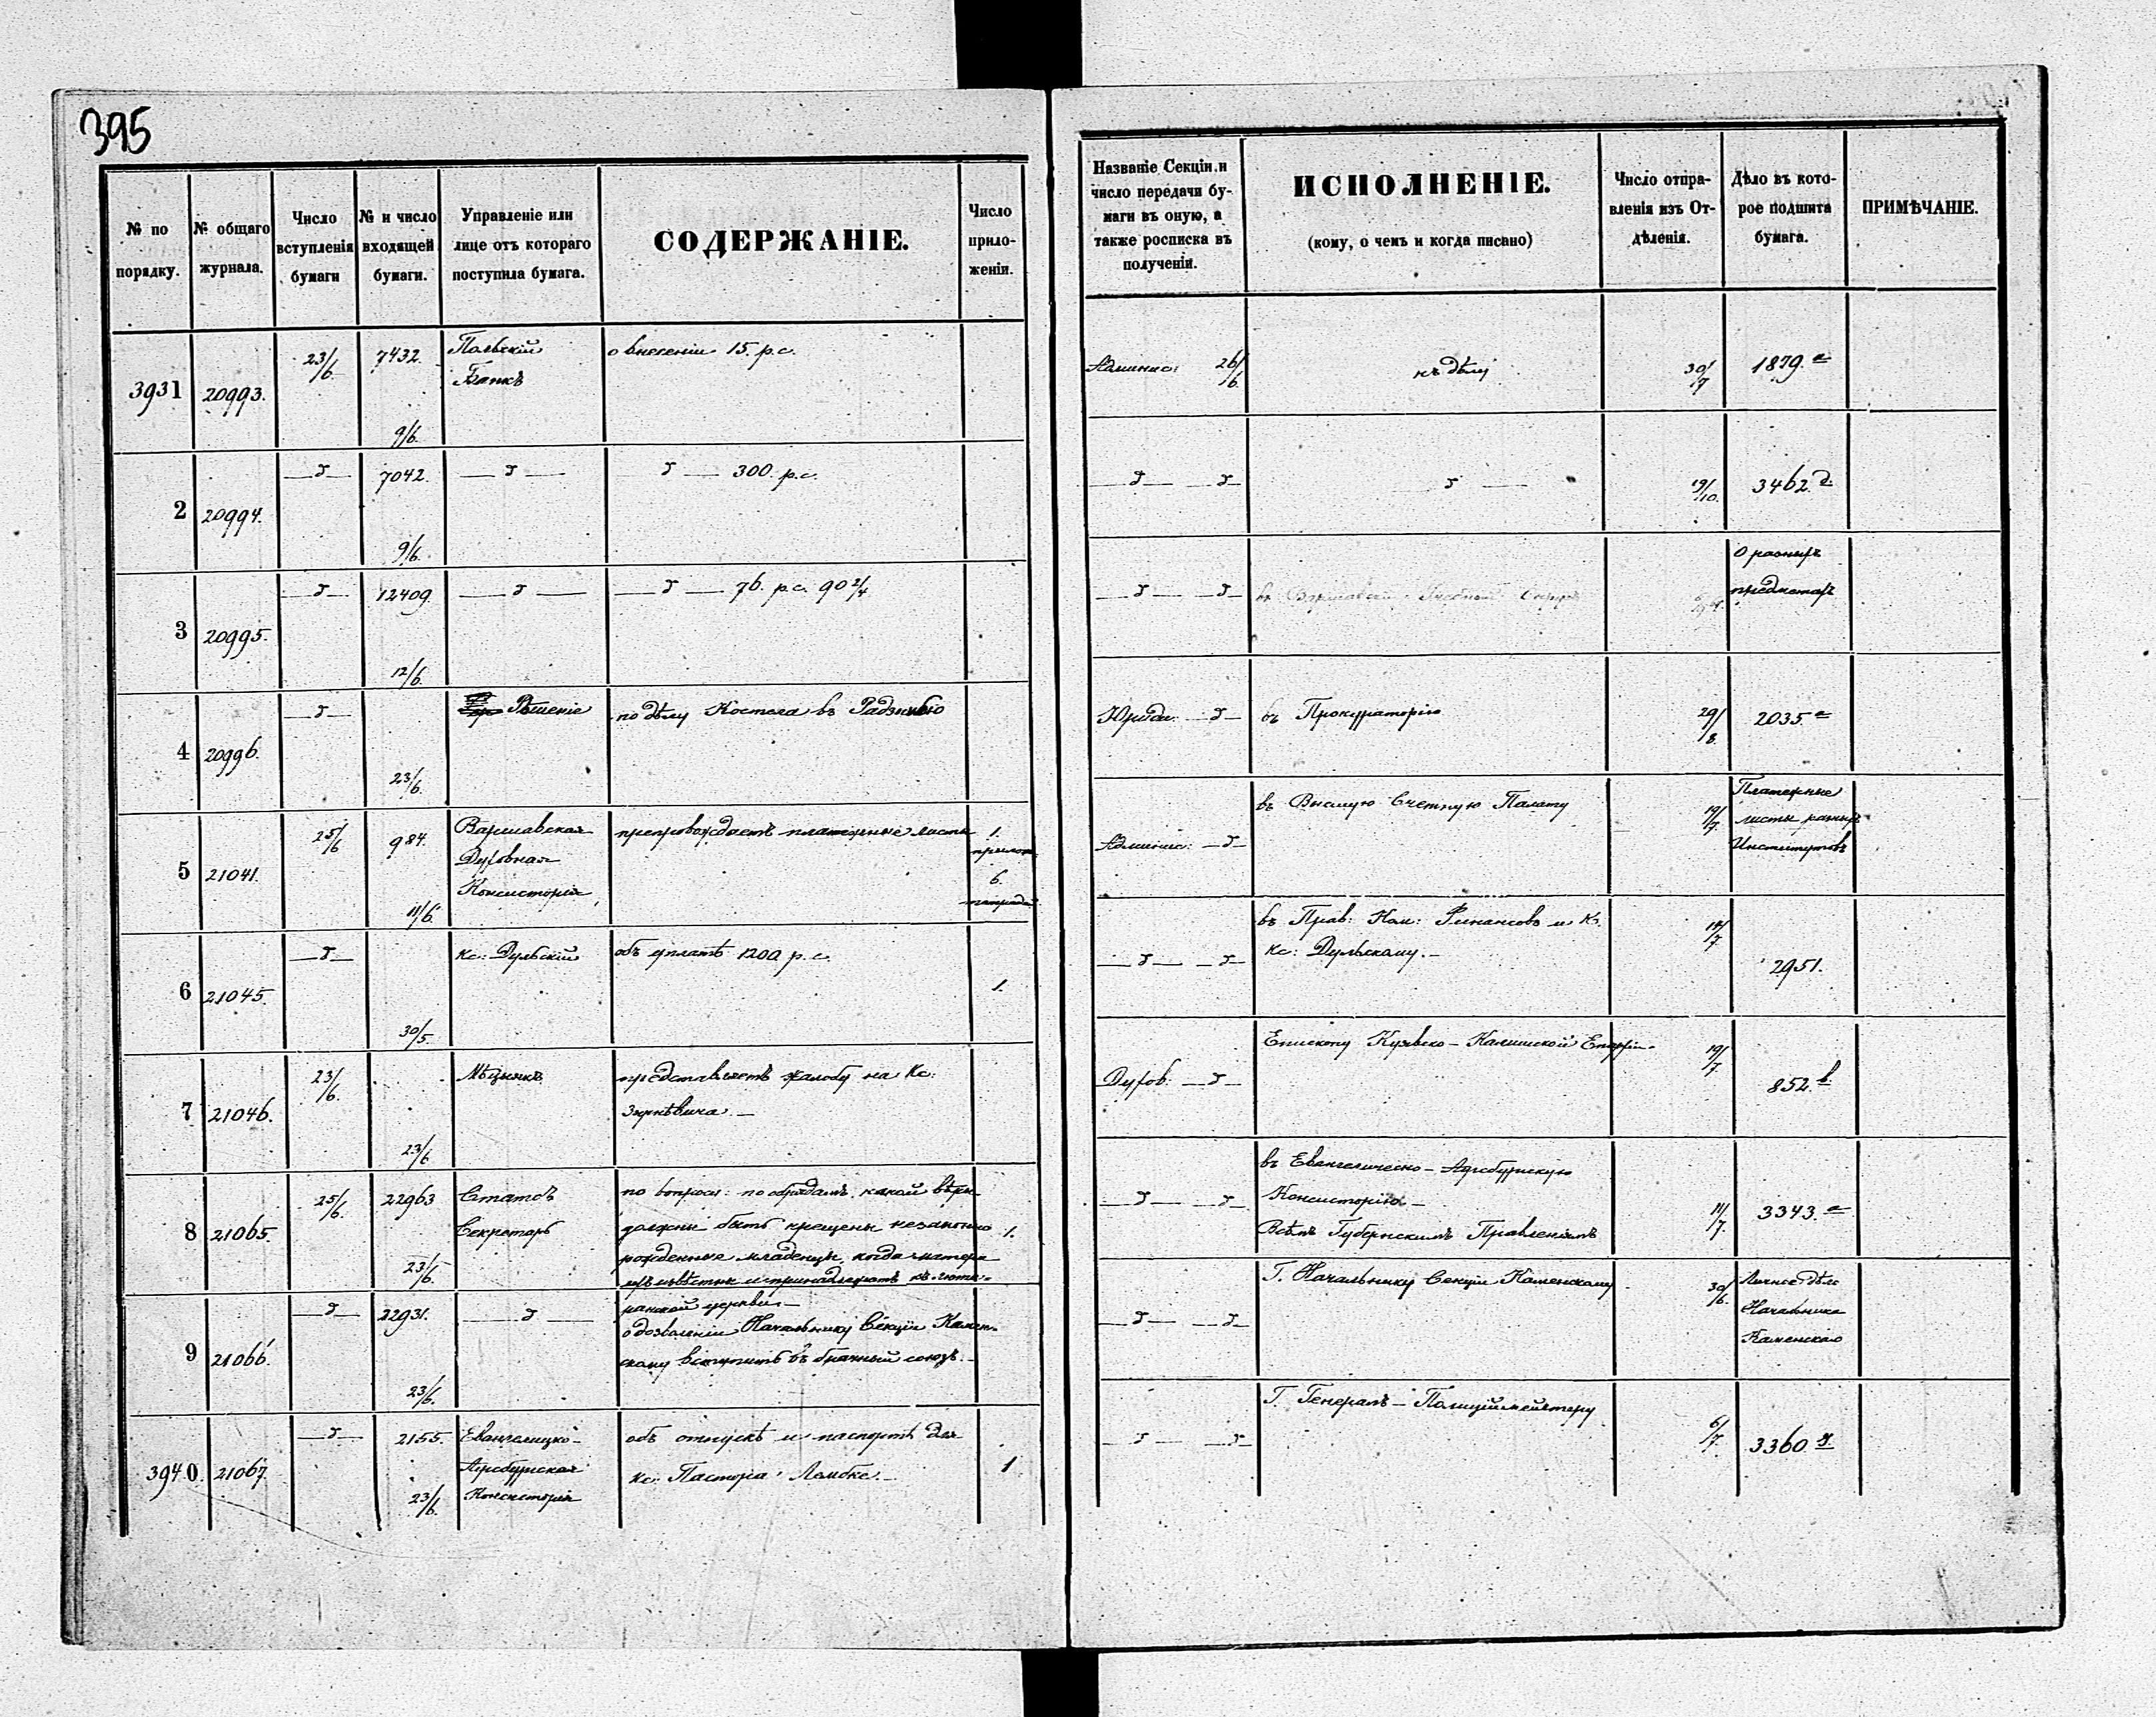 395
№ по порядку.
№ общаго журнала.
Число вступленія бумаги
№ и число входящей бумаги.
Управленіе или лице отъ котораго поступила бумага.
СОДЕРЖАНІЕ.
Число приложеній.
Названіе Секціи и число передачи бумаги въ оную, а также росписка въ полученіи.
ИСПОЛНЕНІЕ.
(кому, о чемъ и когда писано)
Число отправленія изъ Отдѣленія.
Дѣло въ которое подшита бумага.
ПРИМѢЧАНІЕ.
3931 20993. 23/6 7432. 9/6.
Польскій
Банкъ
о внесеніи 15. р.с.
Админис: 26/6.
къ дѣлу
30/7 1879. а
2 20994. —д— 7042. 9/6.
—д—
д — 300. р.с.
—д— —д—
—д—
19/10. 3462. д.
3 20995. —д— 12409. 12/6.
—д—
—д— 76. р.с. 90 2/4
—д— —д—
О разныхъ
предметахъ
4 20996. —д— 23/6.
Рѣшеніе
по дѣлу Костела въ
Юриди: —д—
въ Прокураторію
29/8. 2035. а
5 21041. 25/6 984. 11/6.
Варшавская
Духовная
Консисторія
препровождаетъ платежные листы
1.
прилож.
6.
Админис: —д—
въ Высшую Счетную Палату
19/7.
Платежные
листы разныхъ
Институтовъ
6 21045. —д— 30/5.
кс: Дульскій
объ уплатѣ 1200 р.с.
1.
—д— —д—
въ Прав: Ком: Финансовъ и К.
кс: Дульскому.—
2951.
7 21046. 23/6. 23/6
представляетъ жалобу на Кс:
Духов: —д—
Епископу Куявско-Калишской Епархіи.
19/7. 852. в.
8 21065. 25/6. 22963 23/6.
Статсъ
Секретарь
по вопросу: по обрядамъ какой вѣры
должны быть крещены незаконно
рожденные младенцы, когда матери
ихъ извѣстны и принадлежатъ къ люте-
ранской церкви.—
1.
—д— —д—
въ Евангелическо-Аугсбургскую
Консисторію—
Всѣмъ Губернскимъ Правленіямъ
11/7. 3343. а
9 21066. —д— 22931. 23/6.
—д—
о дозволеніи Начальнику Секціи Камен-
скому вступить въ брачный союзъ.—
—д— —д—
Г. Начальнику Секціи Каменскому
30/6.
Личное дѣло
Начальника
Каменскаго
3940. 21067. —д— 2155. 23/6.
Евангелицко-
Аугсбургская
Консисторія
объ отпускѣ и паспортѣ для
кс: Пастора Лембке.—
1
—д— —д—
Г. Генералъ-Полиціймейстеру
6/7. 3360